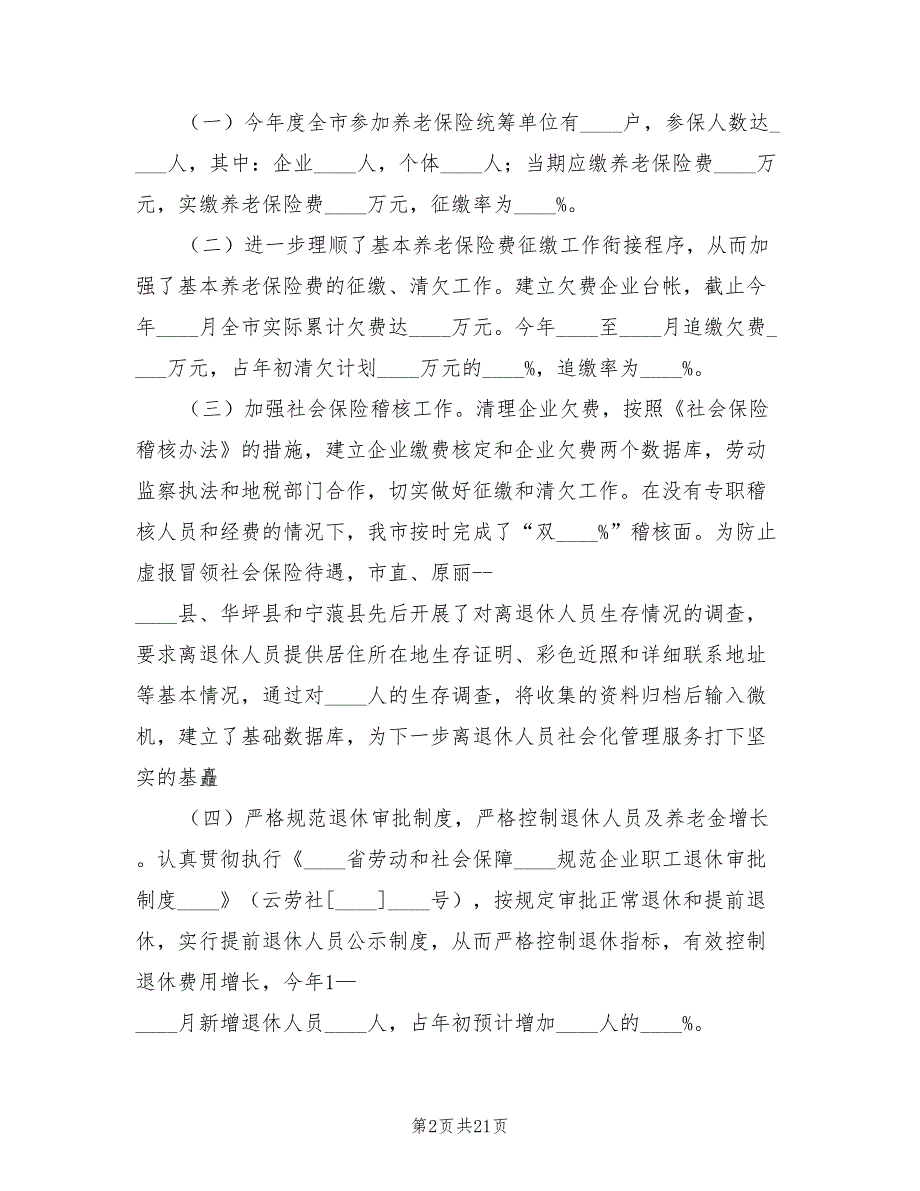 （一）今年度全市参加养老保险统筹单位有____户，参保人数达_
___人，其中：企业____人，个体____人；当期应缴养老保险费____万
元，实缴养老保险费____万元，征缴率为____%。
（二）进一步理顺了基本养老保险费征缴工作衔接程序，从而加
强了基本养老保险费的征缴、清欠工作。建立欠费企业台帐，截止今
年____月全市实际累计欠费达____万元。今年____至____月追缴欠费_
___万元，占年初清欠计划____万元的____%，追缴率为____%。
（三）加强社会保险稽核工作。清理企业欠费，按照《社会保险
稽核办法》的措施，建立企业缴费核定和企业欠费两个数据库，劳动
监察执法和地税部门合作，切实做好征缴和清欠工作。在没有专职稽
核人员和经费的情况下，我市按时完成了“双____%”稽核面。为防止
虚报冒领社会保险待遇，市直、原丽--
____县、华坪县和宁蒗县先后开展了对离退休人员生存情况的调查，
要求离退休人员提供居住所在地生存证明、彩色近照和详细联系地址
等基本情况，通过对____人的生存调查，将收集的资料归档后输入微
机，建立了基础数据库，为下一步离退休人员社会化管理服务打下坚
实的基矗
（四）严格规范退休审批制度，严格控制退休人员及养老金增长
。认真贯彻执行《____省劳动和社会保障____规范企业职工退休审批
制度____》（云劳社[____]____号），按规定审批正常退休和提前退
休，实行提前退休人员公示制度，从而严格控制退休指标，有效控制
退休费用增长，今年1—
____月新增退休人员____人，占年初预计增加____人的____%。
第2页共21页